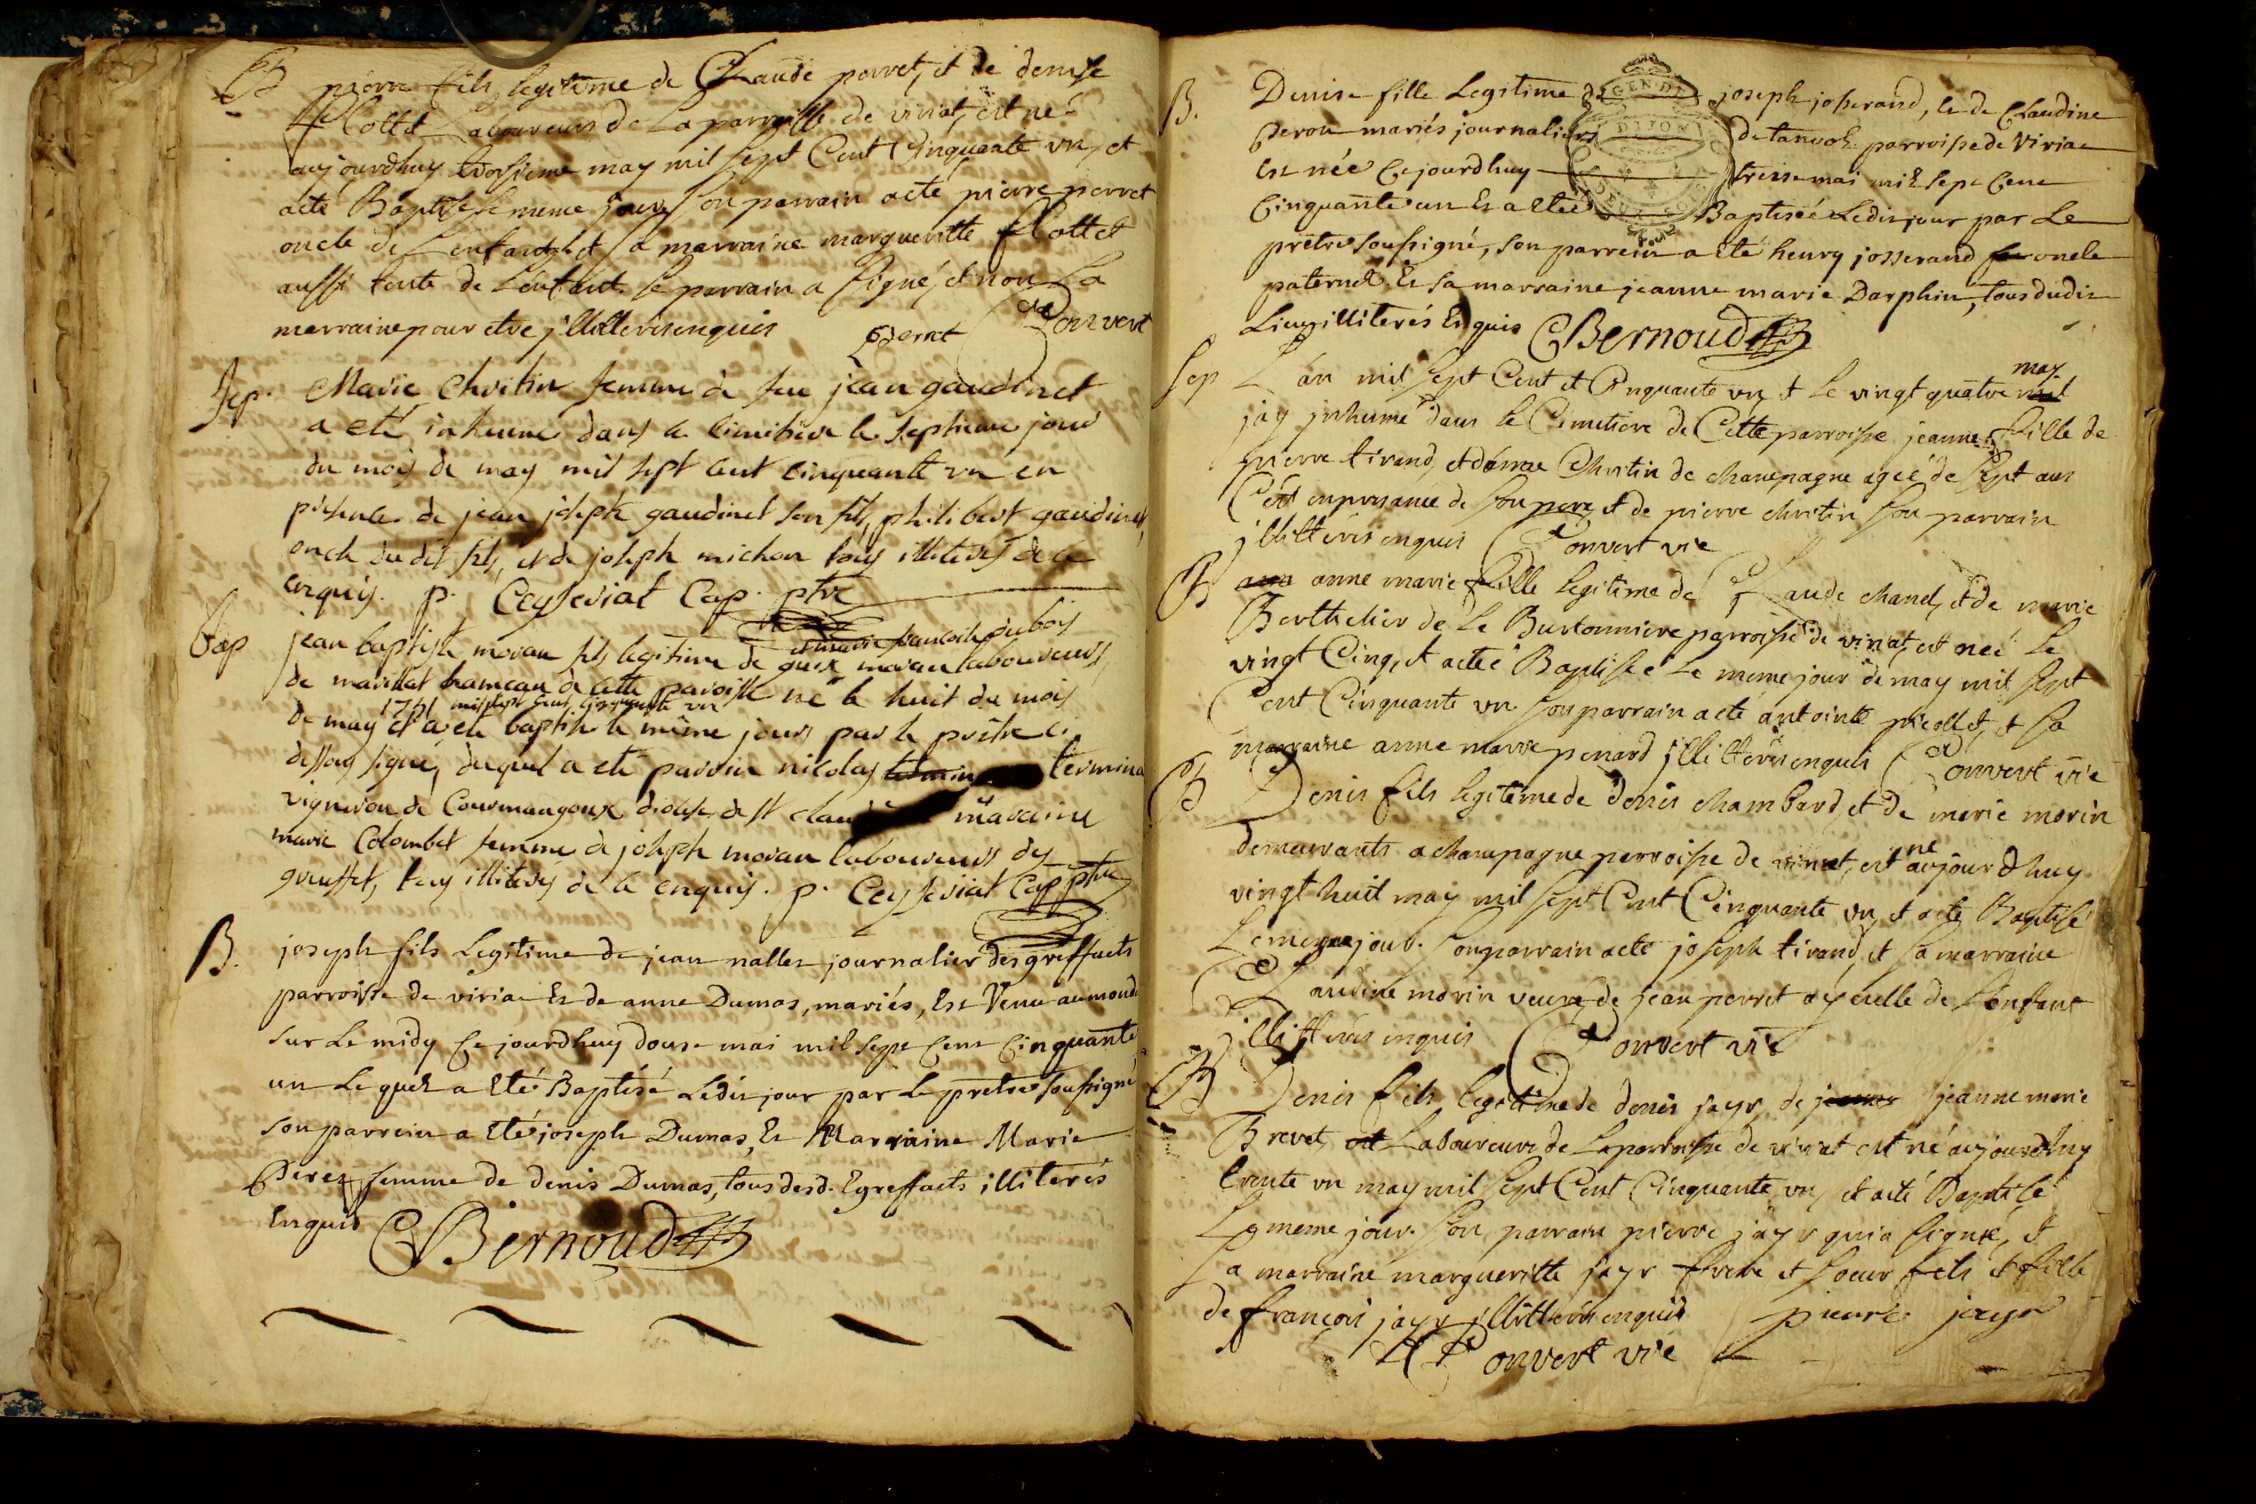 B pierre fils legitime de Claude perret, et de denise
flottet Laboureurs de La parroisse de viriat, est né
aujourdhuy troisieme may mil sept Cent Cinquante un, et
acté Baptisé le meme jour son parrain acté pierre perret
oncle de Lenfant, et sa marraine margueritte flottet
aussi tente de Lenfant le parrain a signé, et non La
marraine pour etre jllitteré enquis Perret Convert
Sep. Marie Chritin femme de feu jean gaudinet
a eté inhumé dans le cimitiere le septieme jour
du mois de may mil sept cent cinquante un en
présence de jean joseph gaudinet son fils, philibert gaudinet,
oncle du dit fils, et de joseph michon tous illiterés de ce
enquis. p. Ceyseriat Cap. ptre
et marie françoise dubois
Bap jean baptiste moran fils legitime de guex moran laboureurs,
de marillat hameau de cette paroisse né le huit du mois
1751 mil sept cent cinquante un
de may et a eté baptisé le même jours par le prêtre ci
dessous signé, duquel a eté parrin nicolas termina
vigneron de Courmangoux diocese de st claude maraine
marie Colombet femme de joseph moran laboureurs des
greuffet, tous illiterés de ce enquis. p. Ceyseriat Cap ptre
B. joseph fils Legitime de jean nallet journalier des greffacts
parroisse de viriac Et de anne Dumas, mariés, Est Venu au monde
sur Le midy Ce jourdhuy douse mai mil sept Cent Cinquante
un Le quel a Eté Baptisé Ledit jour par Le pretre soussigné
son parrein a Eté joseph Dumas, Et Marraine Marie
Peret femme de denis Dumas, tous desd. Egreffacts illiterés
Enquis CBernoud
B. Denise fille Legitime de joseph josserand, Et de Claudine
Perou mariés journaliers de tanvol parroisse de Viriac
Est née Ce jourdhuy treise mai mil sept Cent
Cinquante un Et a Eté Baptisée Ledit jour par Le
prêtre soussigné, son parrein a Eté henry josserand son oncle
paternel Et sa marraine jeanne marie Darphin, tous dudit
Lieu, illiterés Enquis CBernoud
may
Sep L'an mil sept Cent et Cinquante un et le vingt quatre mil
jay jnhumé dans le Cimetiere de Cette parroisse jeanne fille de
pierre tirand, et denise Chritin de champagne agée de sept ans
Cest en presance de son pere, et de pierre chritin son parrain
jllitterés enquis Convert vre
B ann anne marie fille legitime de Claude chanel, et de marie
Berthelier de Le Burtonniere parroisse de viriat, est neé Le
vingt Cinq, et actée Baptisée Le meme jour de may mil sept
Cent Cinquante un son parrain acté antointe picollet, et sa
marraine anne marie penard jllitterés enquis Convert vre
B Denis fils legitime de denis chambard, et de marie morin
ne
demeurants a champagne perroisse de viriat, est aujourdhuy
vingt huit may mil sept Cent Cinquante un, et acté Baptisé
Lememe jour. son parrain acté joseph tirand, et sa marraine
Claudine morin veuve de jean perret ayeulle de Lenfant
jllitterés enquis Convert vre
B Denis fils legitime de denis jayr, de jeanne jeanne marie
Brevet, est Laboureurs de Laparroisse de viriat est né aujourdhuy
trente un may mil sept Cent Cinquante un, et acté Baptisé
Le meme jour. son parrain pierre jayr qui a signé, et
sa marraine margueritte jayr frere et soeur fils et fille
de françois jayr jllitterés enquis pierre jayr
Convert vre